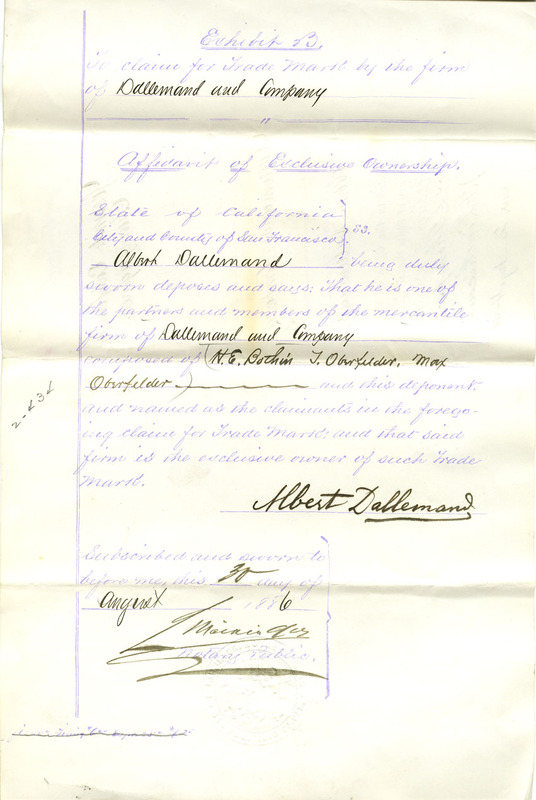 Exhibit B.
To claim for Trade Mark by the firm
of Dallemand and Company
"
Affidavit of Exclusive Ownership.
State of California
City and County of San Francisco } SS.
Albert Dallemand being duly
sworn deposes and says: That he is one of
the partners and members of the mercantile
firm of Dallemand and Company
composed of (H. E. Bothin J. Oberfelder, Max
Oberfelder) and this deponent
and named as the claimants in the forego-
ing claim for Trade Mark; and that said
firm is the exclusive owner of such Trade
Mark.
2-434
Albert Dallemand
Subscribed and sworn to
before me, this 30 day of
August 1886
Notary Public.